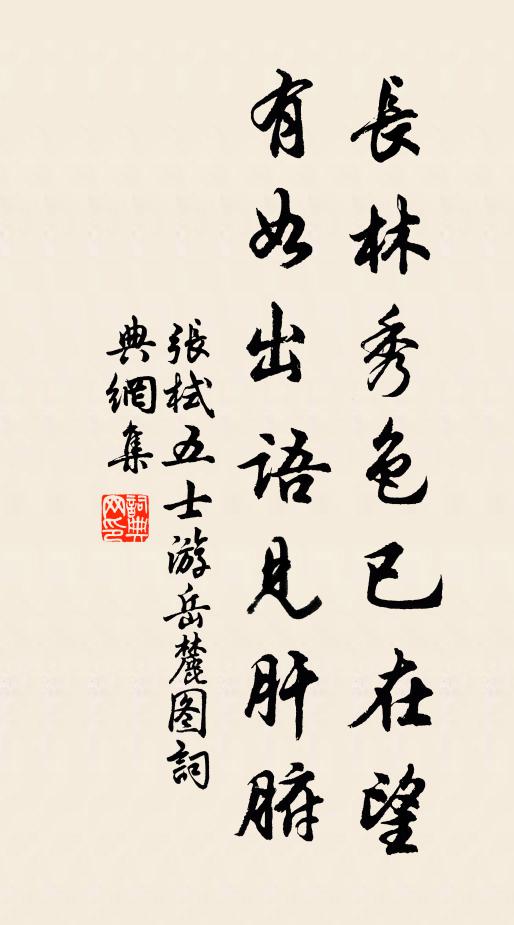 長林秀色已在望
有如出語見肝腑
張栻五士游岳麓图詞
典網集
詞典网印